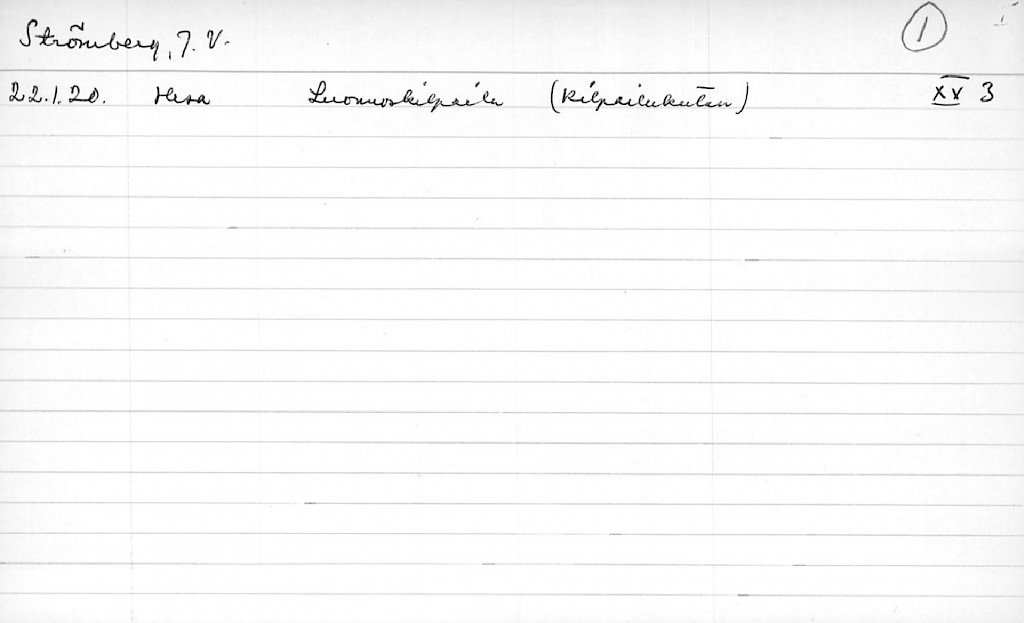 Strömberg, J. V. 1 I
22.1.20. Hesa Luonnoskilpailu (Kilpailukutsu) XV 3